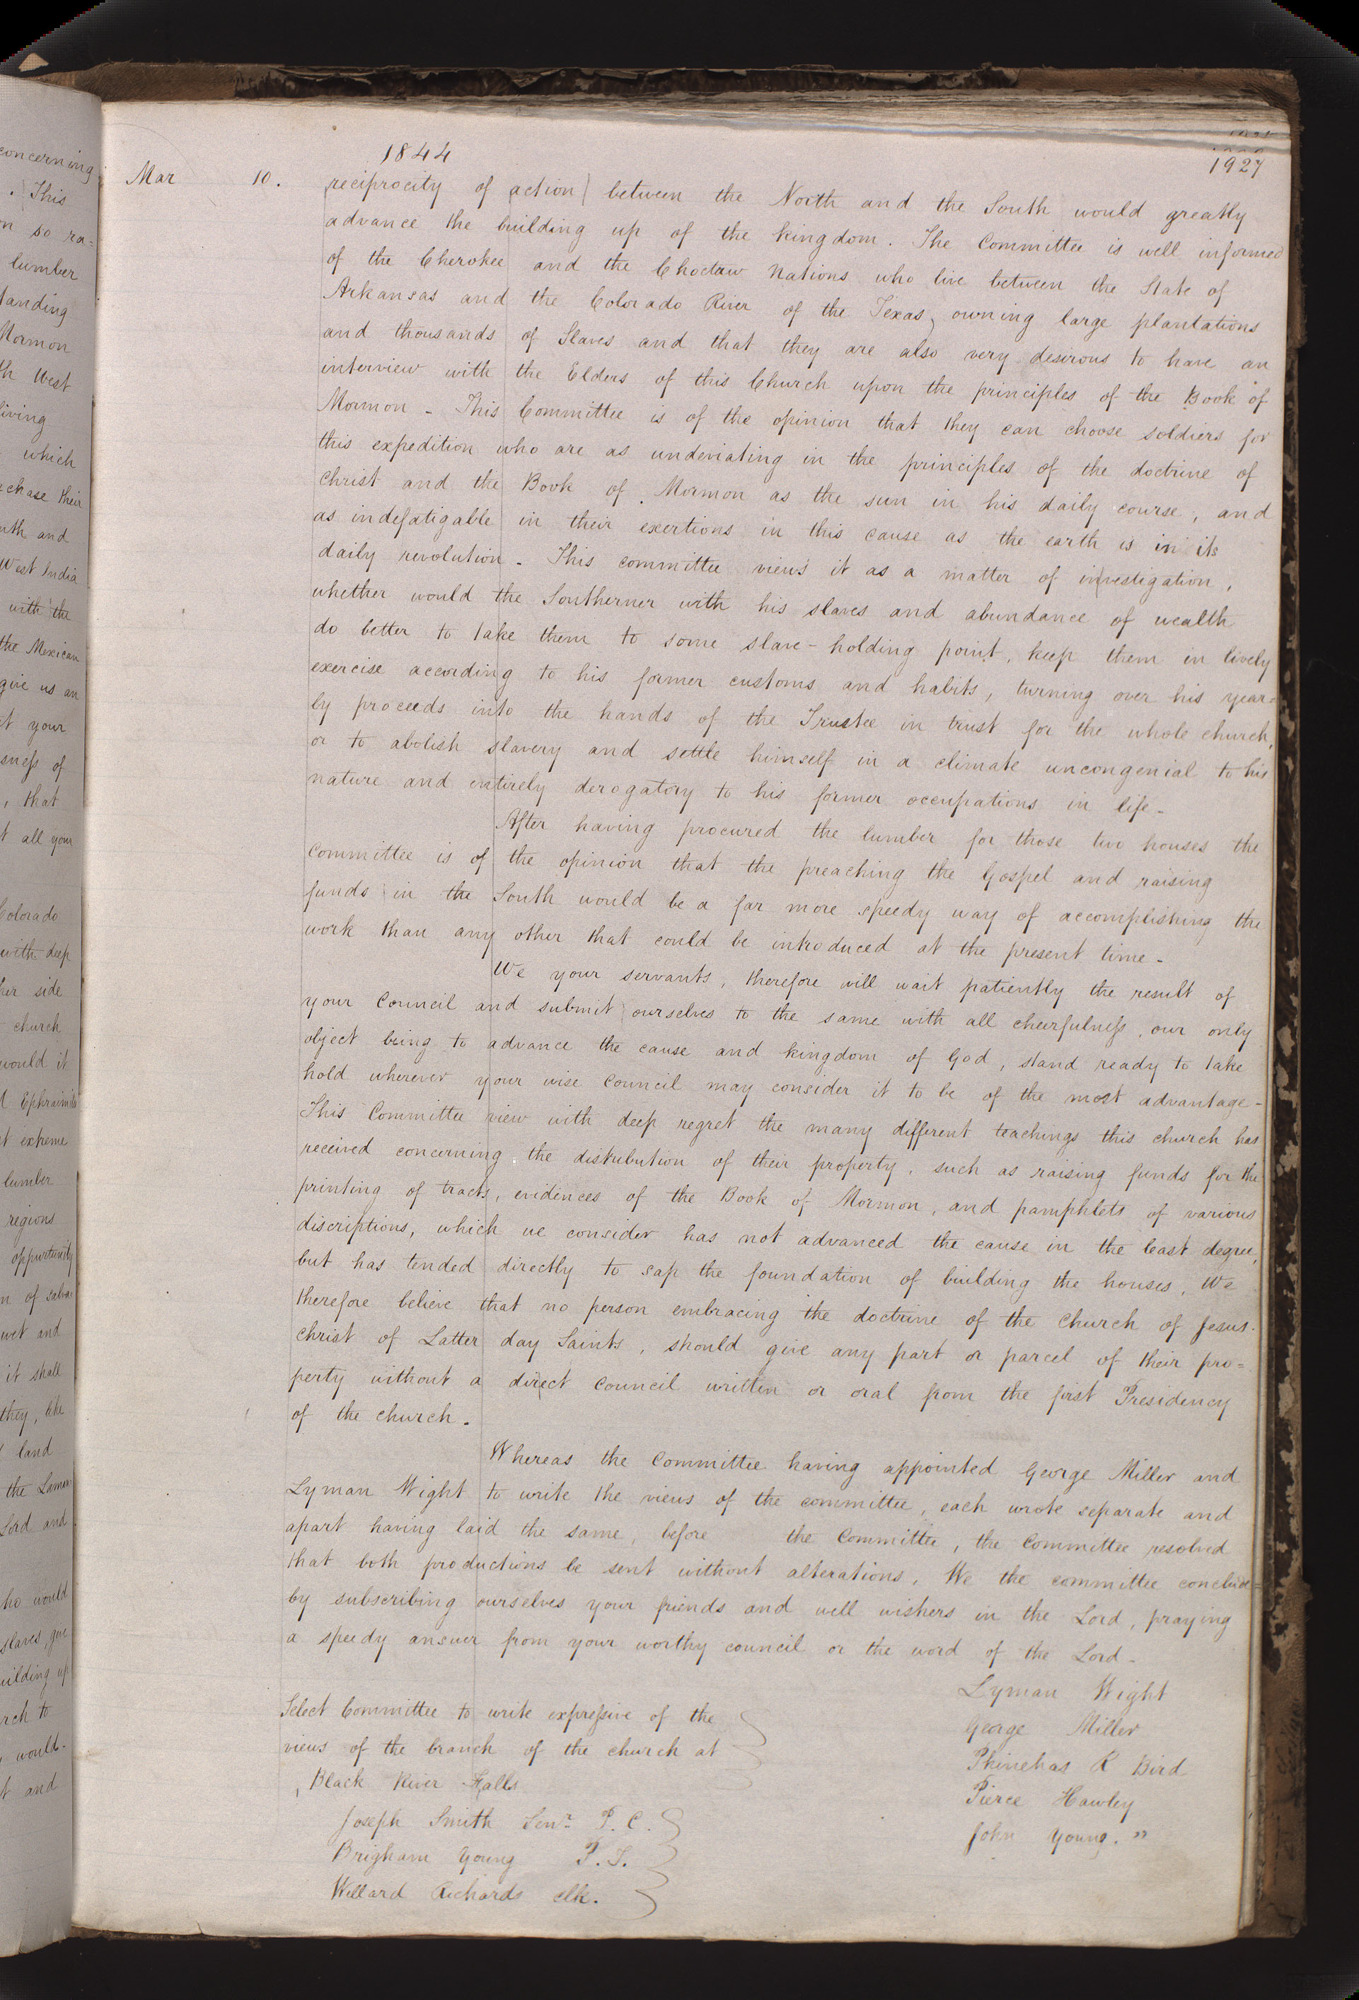 concerning
. This
on so ra=
lumber
landing
Mormon
th West
living
which
rchase their
uth and
West India
with the
the Mexican
give us an
t your
sness of
, that
t all your
Colorado
with deep
her side
church
would it
d Ephraim's
t extreme
lumber
regions
opportunity
n of salva=
wet and
it shall
they, like
land
the Laman=
Lord and
ho would
slaves, give
uilding up
rch to
, would
t and
1844
1927
Mar 10. reciprocity of action) between the North and the South would greatly
advance the building up of the kingdom. The Committee is well informed
of the Cherokee and the Choctaw Nations who live between the State of
Arkansas and the Colorado River of the Texas, owning large plantations
and thousands of Slaves and that they are also very desirous to have an
interview with the Elders of this Church upon the principles of the Book of
Mormon - This Committee is of the opinion that they can choose soldiers for
this expedition who are as undeviating in the principles of the doctrine of
Christ and the Book of Mormon as the sun in his daily course, and
as indefatigable in their exertions in this cause as the earth is in its
daily revolution. This committee views it as a matter of investigation,
whether would the Southerner with his slaves and abundance of wealth
do better to take them to some slave-holding point, keep them in lively
exercise according to his former customs and habits, turning over his year=
ly proceeds into the hands of the Trustee in trust for the whole church,
or to abolish slavery and settle himself in a climate uncongenial to his
nature and entirely derogatory to his former occupations in life-
After having procured the lumber for those two houses the
committee is of the opinion that the preaching the Gospel and raising
funds in the South would be a far more speedy way of accomplishing the
work than any other that could be introduced at the present time-
We your servants, therefore will wait patiently the result of
your Council and submit ourselves to the same with all cheerfulness, our only
object being to advance the cause and kingdom of God, stand ready to take
hold wherever your wise Council may consider it to be of the most advantage-
This Committee view with deep regret the many different teachings this church has
received concerning the distribution of their property, such as raising funds for the
printing of tracts, evidences of the Book of Mormon, and pamphlets of various
discriptions, which we consider has not advanced the cause in the least degree,
but has tended directly to sap the foundation of building the houses. We
therefore believe that no person embracing the doctrine of the Church of Jesus
Christ of Latter day Saints, should give any part or parcel of their pro=
perty without a direct council written or oral from the first Presidency
of the church.
Whereas the Committee having appointed George Miller and
Lyman Wight to write the views of the committee, each wrote separate and
apart having laid the same, before the Committee, the Committee resolved
that both productions be sent without alterations. We the committee conclude=
by subscribing ourselves your friends and well wishers in the Lord, praying
a speedy answer from your worthy council or the word of the Lord-
Lyman Wight
Select Committee to write expressive of the
George Miller
views of the branch of the church at
Phinehas R Bird
Black River Falls
Pierce Hawley
Joseph Smith Senr. P. C.
John Young. "
Brigham Young P. S.
Willard Richards clk.